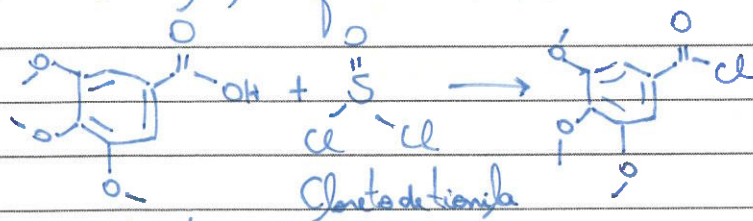 O O O
O OH + S O Cl
O Cl Cl O
O O
Cloreto de tionila